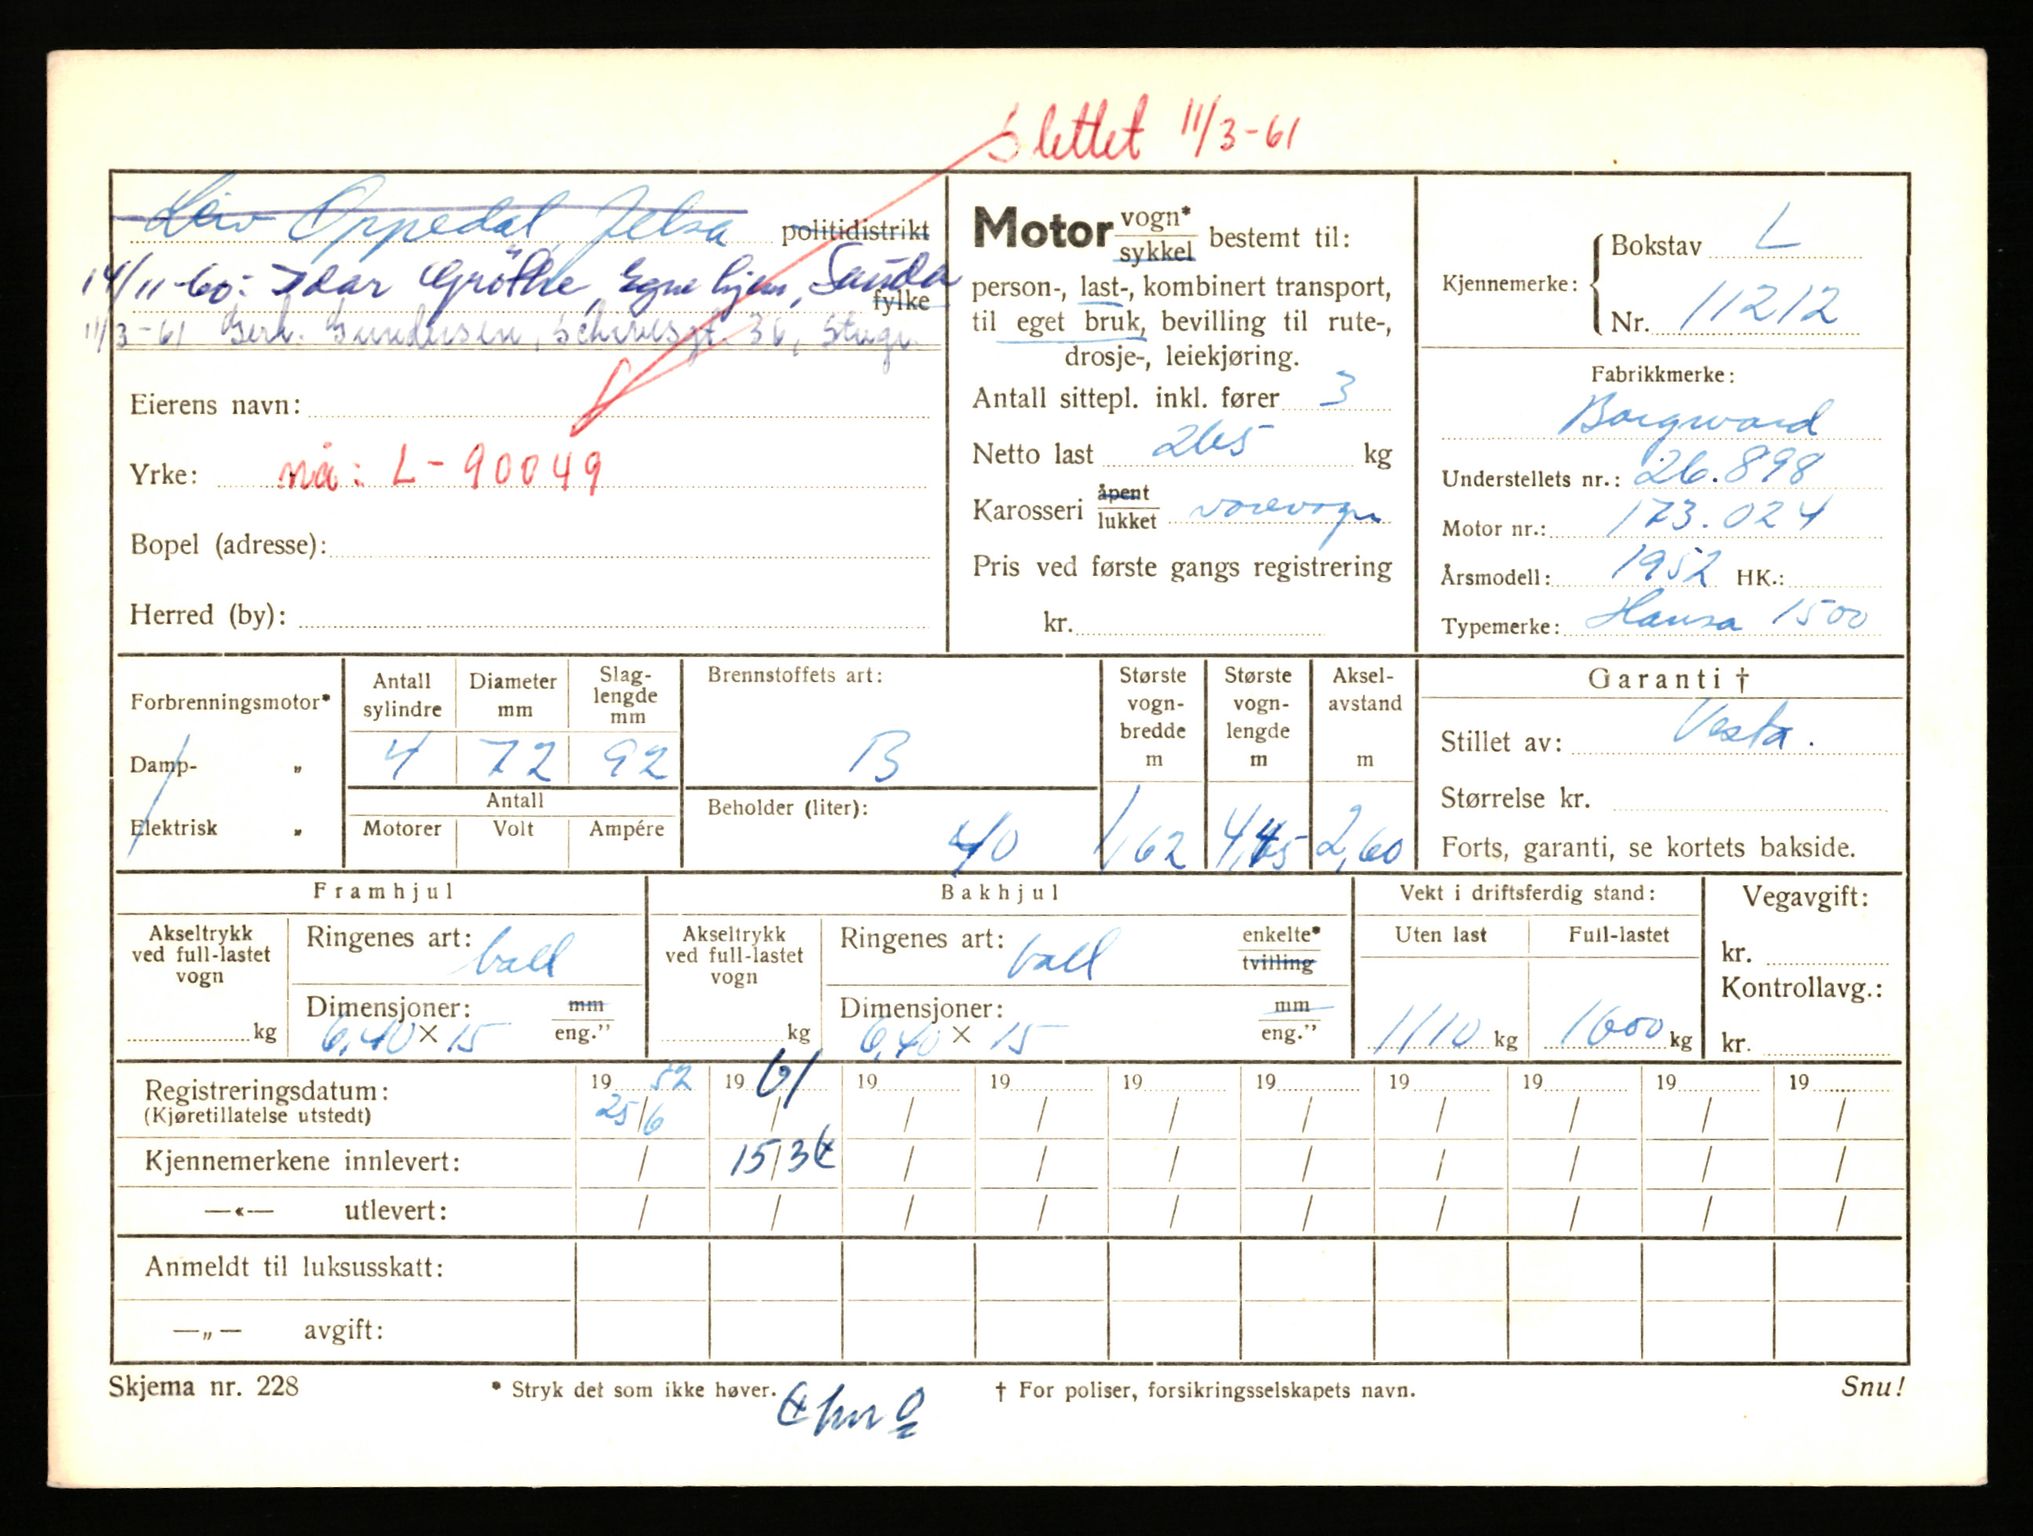 Slettet 11/3-61
Leiv Oppedal, Jelsa politidistrikt
14/11-60: Idar Grøthe, Egne hjem, Sauda
fylke
11/3-61 Gerh. Gundersen, Schivesgt. 36, Stvgr.
Eierens navn:
Yrke: nå: L-90049
Bopel (adresse):
Herred (by):
Motor vogn* sykkel bestemt til:
person-, last-, kombinert transport,
til eget bruk, bevilling til rute-,
drosje-, leiekjøring.
Antall sittepl. inkl. fører 3
Netto last 265 kg
Karosseri åpent lukket varevogn
Pris ved første gangs registrering
kr.
Kjennemerke: Bokstav L
Nr. 11212
Fabrikkmerke:
Borgward
Understellets nr.: 26.898
Motor nr.: 173.024
Årsmodell: 1952 HK.:
Typemerke: Hansa 1500
Forbrenningsmotor*
Damp- „
Elektrisk „
Antall sylindre
Diameter mm
Slag-lengde mm
4 72 92
Antall
Motorer Volt Ampére
Brennstoffets art:
B
Beholder (liter):
40
Største vogn-bredde m
1,62
Største vogn-lengde m
4,45
Aksel-avstand m
2,60
Garanti †
Stillet av: Vesta.
Størrelse kr.
Forts, garanti, se kortets bakside.
Framhjul
Akseltrykk ved full-lastet vogn
kg
Ringenes art: ball
Dimensjoner: mm
6,40 × 15 eng.”
Bakhjul
Akseltrykk ved full-lastet vogn
kg
Ringenes art: ball enkelte* tvilling
Dimensjoner: mm
6,40 × 15 eng.”
Vekt i driftsferdig stand:
Uten last Full-lastet
1110 kg 1600 kg
Vegavgift:
kr.
Kontrollavg.:
kr.
Registreringsdatum: 19 52 19 61 19 19 19 19 19 19 19 19
(Kjøretillatelse utstedt) 25/6 / / / / / / / / /
Kjennemerkene innlevert: / 15/3 / / / / / / / /
—«— utlevert: / / / / / / / / / /
Anmeldt til luksusskatt:
—„— avgift:
Skjema nr. 228 * Stryk det som ikke høver. † For poliser, forsikringsselskapets navn. Snu!